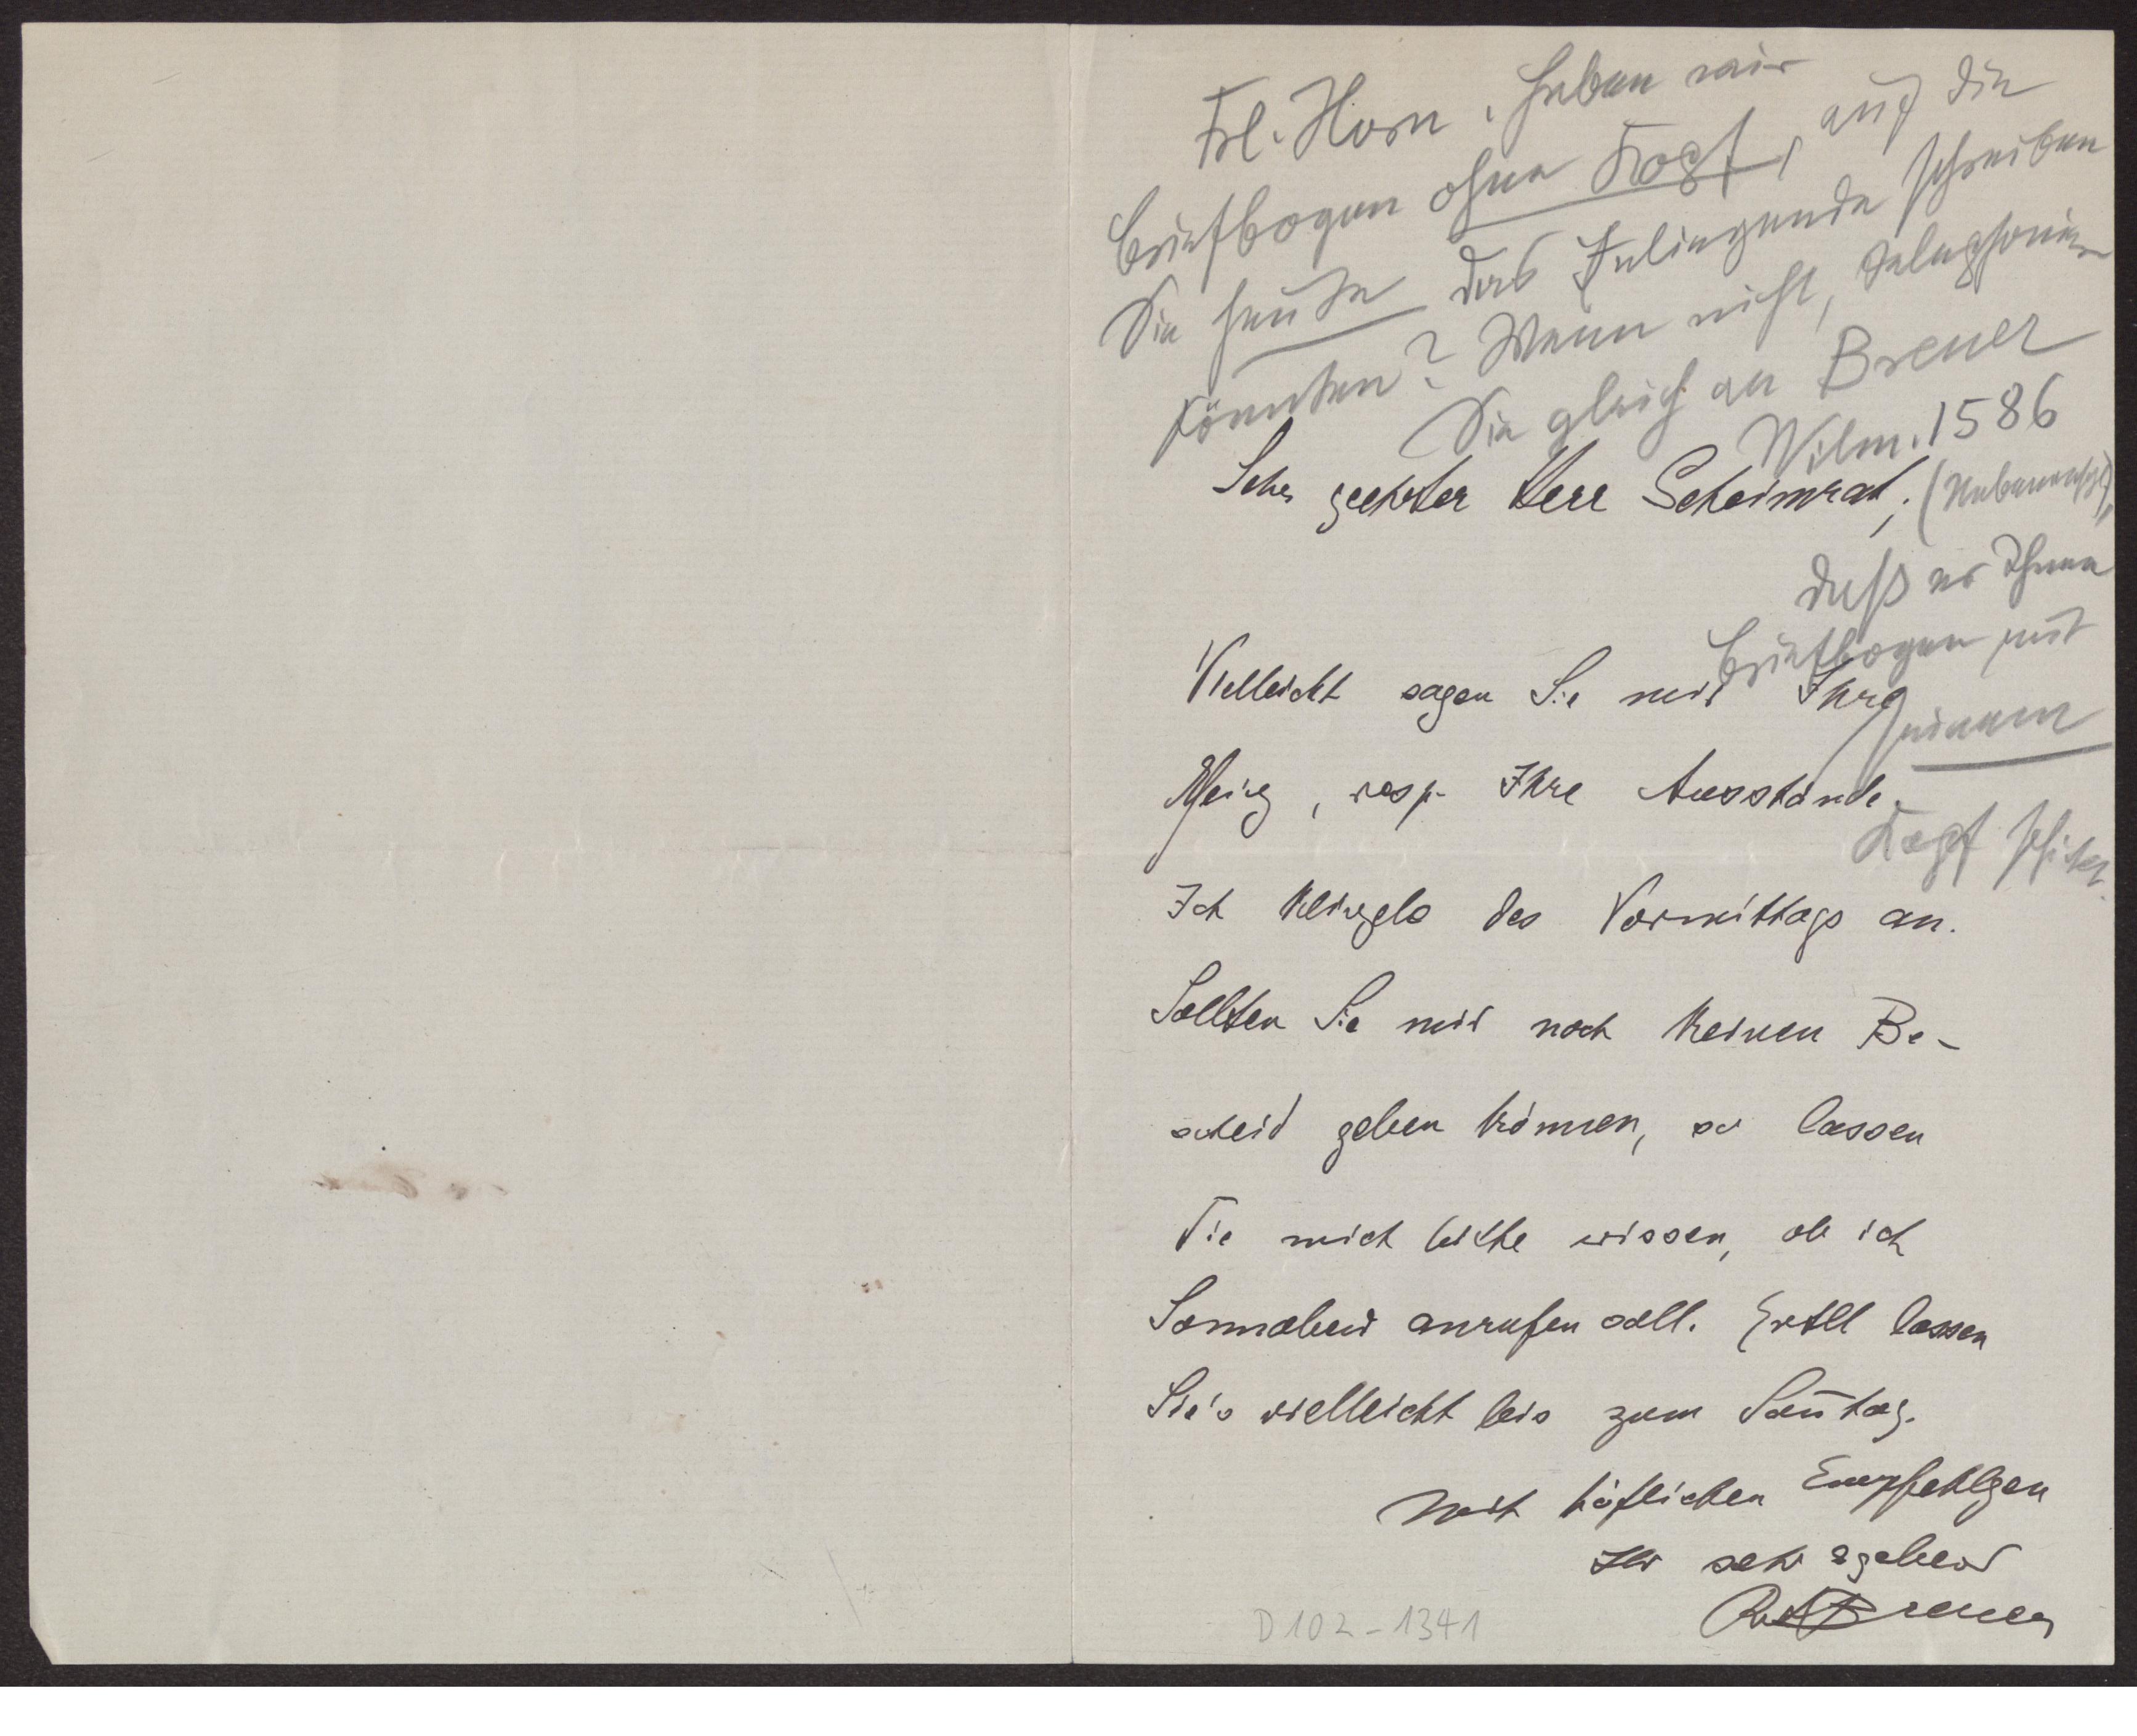 Frl. Horn, haben wir
Briefbogen ohne Kopf, auf die
Sie heute das Inliegende schreiben
könnten? Wenn nicht, telephonieren
Sie gleich an Brener
Wilm. 1586
(Nebenanschl.),
daß er Ihnen
Briefbogen mit
seinem
Kopf schickt.
Sehr geehrter Herr Geheimrat,
Vielleicht sagen Sie mir Ihre
Mein'g, resp. Ihre Ausstände.
Ich klingele des Vormittags an.
Sollten Sie mir noch keinen Be-
scheid geben können, so lassen
Sie mich bitte wissen, ob ich
Sonnabend anrufen soll. Evtll lassen
Sie's vielleicht bis zum Son̄tag.
Mit höflichen Empfehlgen
Ihr sehr ergebener
Brener
D 102-1341